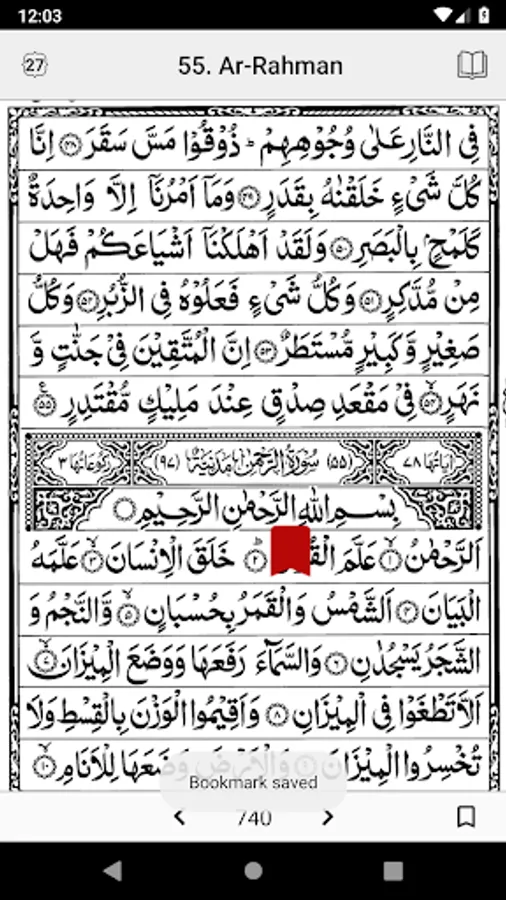 12:03
27
55. Ar-Rahman
فِى النَّارِ عَلٰى وُجُوْهِهِمْ ؕ ذُوْقُوْا مَسَّ سَقَرَ ۝۴۸ اِنَّا
كُلَّ شَىْءٍ خَلَقْنٰهُ بِقَدَرٍ ۝۴۹ وَمَاۤ اَمْرُنَاۤ اِلَّا وَاحِدَةٌ
كَلَمْحٍۭ بِالْبَصَرِ ۝۵۰ وَلَقَدْ اَهْلَكْنَاۤ اَشْيَاعَكُمْ فَهَلْ
مِنْ مُّدَّكِرٍ ۝۵۱ وَكُلُّ شَىْءٍ فَعَلُوْهُ فِى الزُّبُرِ ۝۵۲ وَكُلُّ
صَغِيْرٍ وَّكَبِيْرٍ مُّسْتَطَرٌ ۝۵۳ اِنَّ الْمُتَّقِيْنَ فِىْ جَنّٰتٍ وَّ
نَهَرٍ ۝۵۴ فِىْ مَقْعَدِ صِدْقٍ عِنْدَ مَلِيْكٍ مُّقْتَدِرٍ ۝۵۵
اٰيَاتُهَا ۷۸ (۵۵) سُوْرَةُ الرَّحْمٰنِ مَدَنِيَّةٌ (۹۷) رُكُوْعَاتُهَا ۳
بِسْمِ اللّٰهِ الرَّحْمٰنِ الرَّحِيْمِ
اَلرَّحْمٰنُ ۝۱ عَلَّمَ ۝۲ خَلَقَ الْاِنْسَانَ ۝۳ عَلَّمَهُ
الْبَيَانَ ۝۴ اَلشَّمْسُ وَالْقَمَرُ بِحُسْبَانٍ ۝۵ وَّالنَّجْمُ وَ
الشَّجَرُ يَسْجُدٰنِ ۝۶ وَالسَّمَآءَ رَفَعَهَا وَوَضَعَ الْمِيْزَانَ ۝۷
اَلَّا تَطْغَوْا فِى الْمِيْزَانِ ۝۸ وَاَقِيْمُوا الْوَزْنَ بِالْقِسْطِ وَلَا
تُخْسِرُوا الْمِيْزَانَ ۝۹ وَالْاَرْضَ وَضَعَهَا لِلْاَنَامِ ۝۱۰
Bookmark saved
740